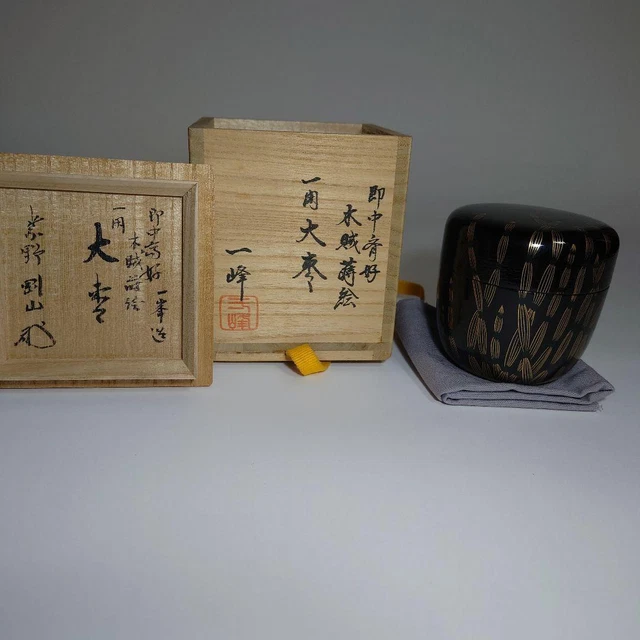 即中斎好
木賊蒔絵
一閑大棗
一峰
一峰
即中斎好 一峯造
木賊蒔絵
一閑
大棗
紫野 剛山